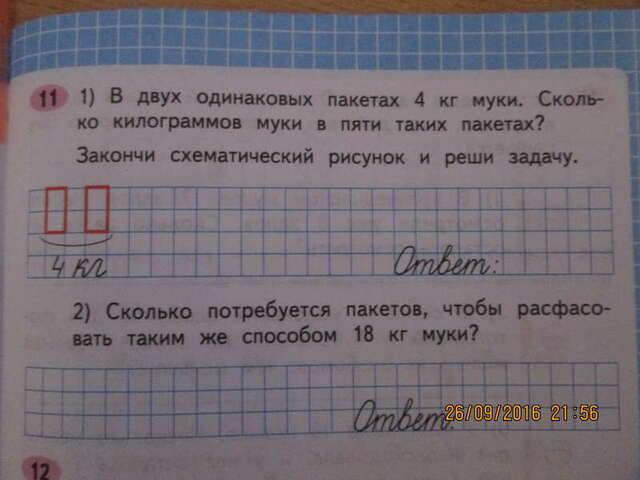 11 1) В двух одинаковых пакетах 4 кг муки. Сколь-
ко килограммов муки в пяти таких пакетах?
Закончи схематический рисунок и реши задачу.
4 кг Ответ:
2) Сколько потребуется пакетов, чтобы расфасо-
вать таким же способом 18 кг муки?
Ответ:
26/09/2016 21:56
12